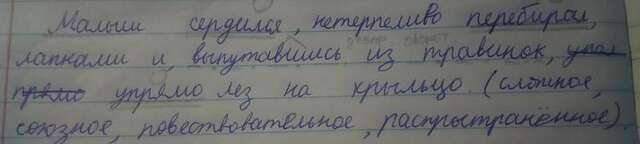 Малыш сердился, нетерпеливо перебирал,
лапками и, выпутавшись из травинок,
упрямо лез на крыльцо. (сложное,
союзное, повествовательное, распрыстранённое).